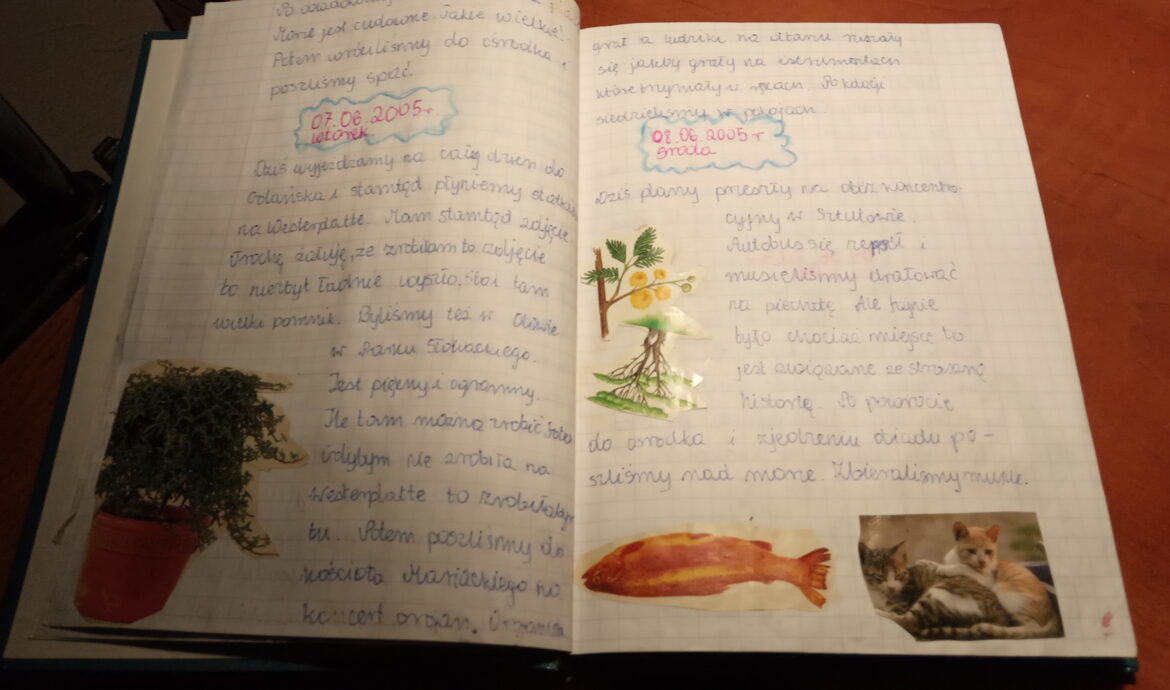 Po obiadokolacji
Morze jest cudowne. Takie wielkie!
Potem wróciliśmy do ośrodka i
poszliśmy spać.
07.06.2005r.
wtorek
Dziś wyjeżdzamy na cały dzień do
Gdańska i stamtąd płyniemy statkie
na Westerplatte. Mam stamtąd zdjęcie.
Trochę żałuję, ze zrobiłam to zdjęcie
bo niezbyt ładnie wyszło. Stoi tam
wielki pomnik. Byliśmy też w Oliwie
w Parku Słowackiego.
Jest piękny i ogromny.
Ile tam można zrobić
Gdybym nie zrobiła na
Westerplatte to zrobiłabym
tu. Potem poszliśmy do
kościoła Mariackiego na
koncert organ. Organista
grał a ludziki na ołtarzu ruszały
się jakby grały na instrumentach
które trzymały w rękach. Po kolacji
siedzieliśmy w pokojach.
08.06.2005 r
środa
Dziś mamy przejść na obóz koncentra-
cyjny w Sztutowie.
Autobus się zepsuł i
musieliśmy drałować
na piechotę. Ale fajnie
było chociaż miejsce to
jest związane ze straszną
historią. Po powrocie
do ośrodka i zjedzeniu obiadu po-
szliśmy nad morze. Zbieraliśmy muszle.